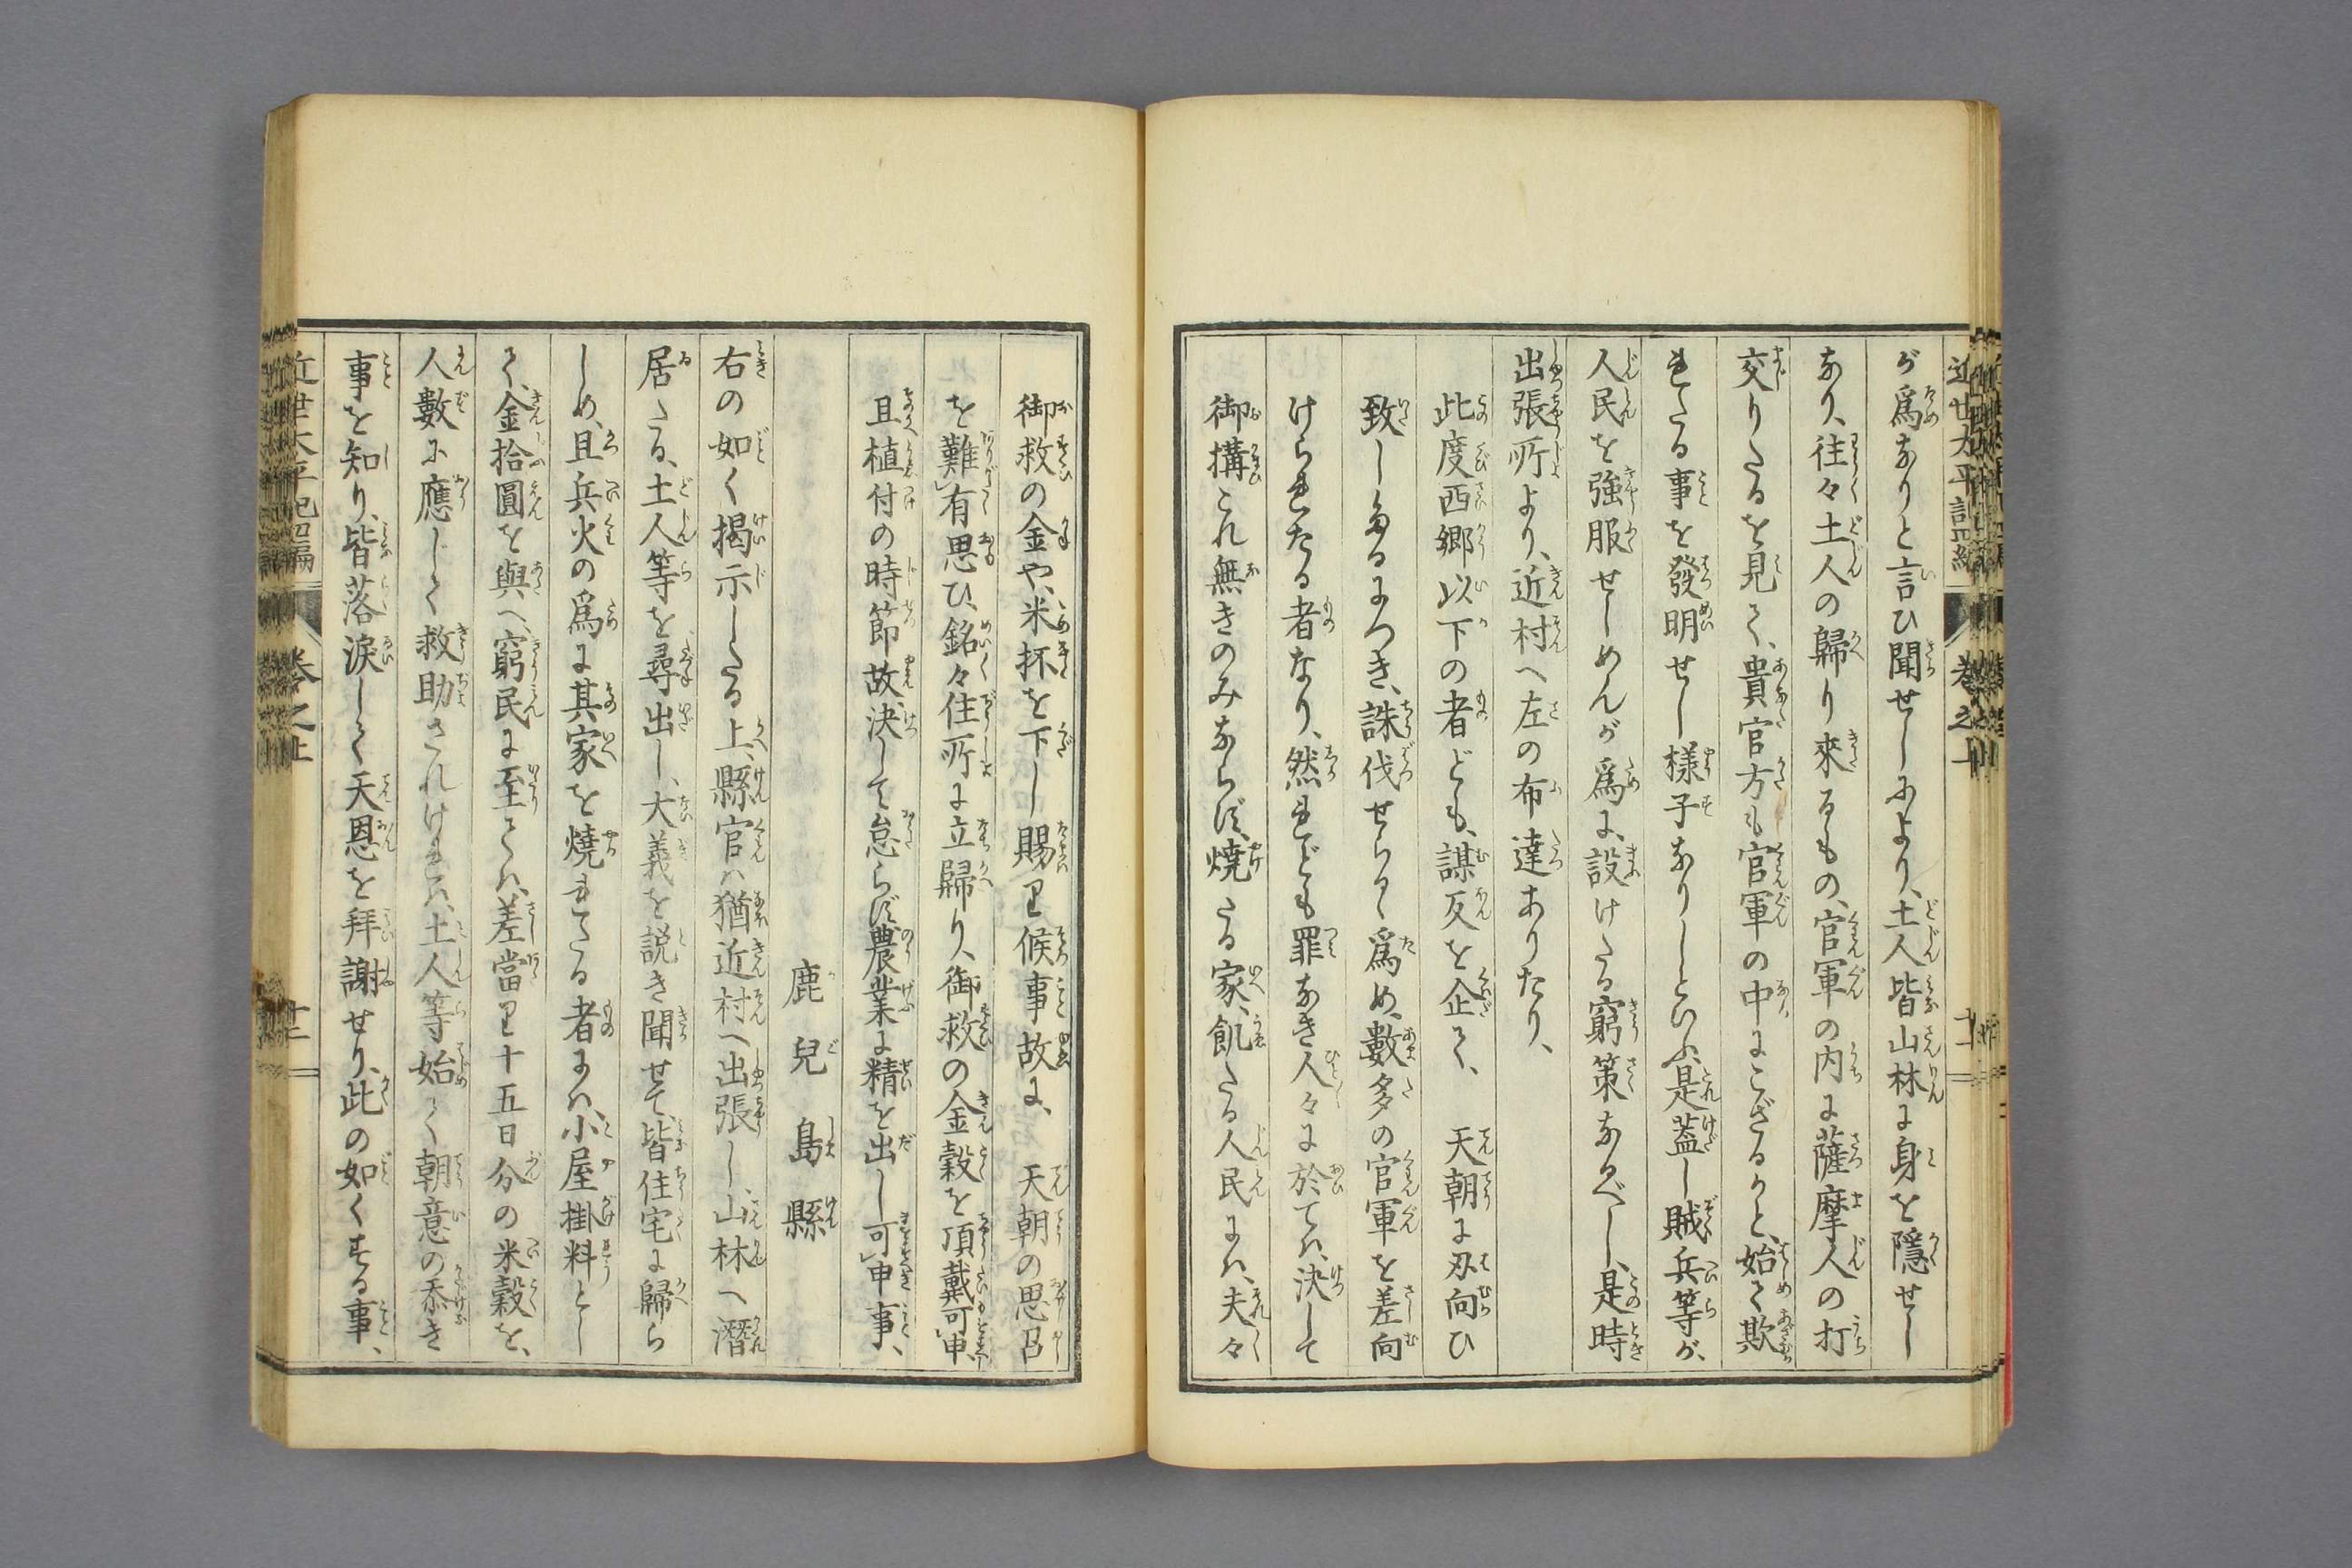 が爲なりと言ひ聞せしにより、土人皆山林に身を隱せし
なり、往々土人の歸り來るもの、官軍の内に薩摩人の打
交りたるを見て、貴官方も官軍の中にござるかと、始て欺
れたる事を發明せし様子なりしといふ、是蓋し賊兵等が、
人民を強服せしめんが爲に、設けたる窮策なるべし、是時
出張所より、近村へ左の布達ありたり、
此度西郷以下の者ども、謀反を企て、　天朝に刃向ひ
致し候につき、誅伐せらるゝ爲め、數多の官軍を差向
けられたる者なり、然れども罪なき人々に於ては、決して
御搆これ無きのみならず、燒たる家、飢たる人民には、夫々
御救の金や、米抔を下し賜り候事故に、　天朝の思召
を難有思ひ、銘々住所に立歸り、御救の金穀を頂戴可申、
且植付の時節故、決して怠らず農業に精を出し可申事、
鹿兒島縣
右の如く揭示したる上、縣官ハ猶近村へ出張し、山林へ潛
居たる、土人等を尋出し、大義を説き聞せて、皆住宅に歸ら
しめ、且兵火の爲に其家を燒れたる者には、小屋掛料とし
て、金拾圓を與へ、窮民に至りては、差當り十五日分の米穀を、
人數に應じて救助されければ、土人等始て朝意の忝き
事を知り、皆落涙して天恩を拜謝せり、此の如くする事、
近世太平記四編　卷之上　十二